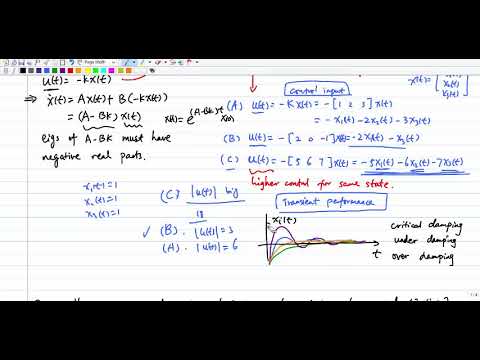 u(t) = -Kx(t)
⇒ ẋ(t) = Ax(t) + B(-Kx(t))
= (A-BK) x(t) x(t) = e^(A-BK)t x(0)
eigs of A-BK must have
negative real parts.
control input
x(t) = [ x₂(t) x₃(t) ]
(A) u(t) = -Kx(t) = -[1 2 3] x(t)
= -x₁(t) -2x₂(t) -3x₃(t)
(B) u(t) = -[2 0 -1] x(t) = -2x₁(t) - x₃(t)
(C) u(t) = -[5 6 7] x(t) = -5x₁(t) -6x₂(t) -7x₃(t)
higher control for same state.
x₁(t) = 1
x₂(t) = 1
x₃(t) = 1
(C) |u(t)| big
18
✓ (B). |u(t)| = 3
(A). |u(t)| = 6
Transient performance
x₁(t)
t
critical damping
under damping
over damping